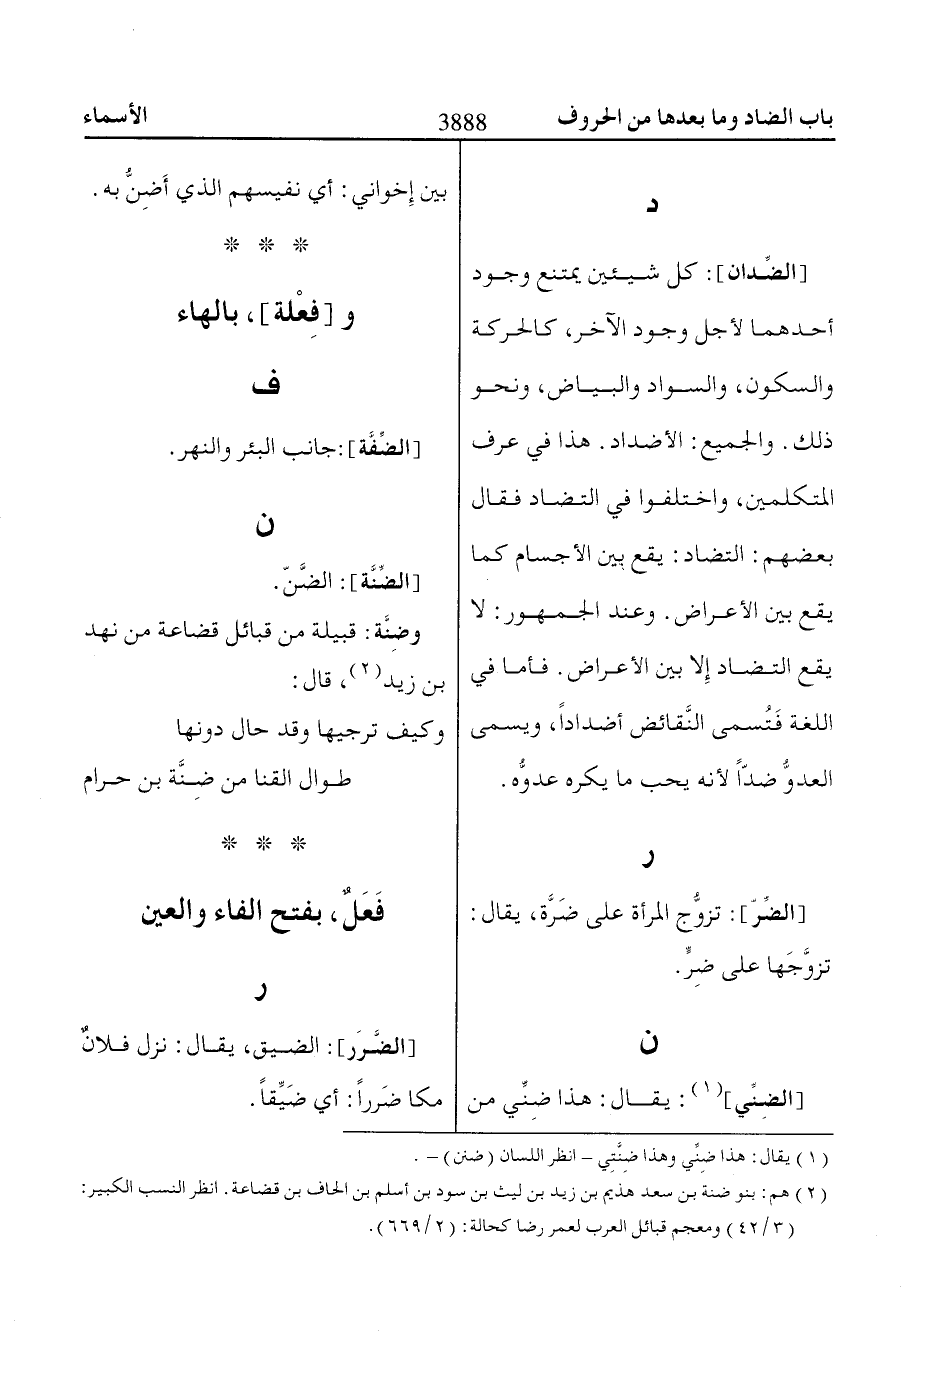 باب الضاد وما بعدها من الحروف 3888 الأسماء
د
[الضِّدان]: كل شيئين يمتنع وجود
أحدهما لأجل وجود الآخر، كالحركة
والسكون، والسواد والبياض، ونحو
ذلك. والجميع: الأضداد. هذا في عرف
المتكلمين، واختلفوا في التضاد فقال
بعضهم: التضاد: يقع بين الأجسام كما
يقع بين الأعراض. وعند الجمهور: لا
يقع التضاد إلا بين الأعراض. فأما في
اللغة فَتُسمى النَّقائض أضداداً، ويسمى
العدوُّ ضدّاً لأنه يحب ما يكره عدوُّه.
ر
[الضِّرّ]: تزوُّج المرأة على ضَرَّة، يقال:
تزوَّجَها على ضِرٍّ.
ن
[الضِنِّي](١): يقال: هذا ضِنِّي من
بين إخواني: أي نفيسهم الذي أَضِنُّ به.
* * *
و [فِعْلة]، بالهاء
ف
[الضِّفَّة]: جانب البئر والنهر.
ن
[الضِّنَّة]: الضَّنّ.
وضِنَّة: قبيلة من قبائل قضاعة من نهد
بن زيد(٢)، قال:
وكيف ترجيها وقد حال دونها
طوال القنا من ضِنَّة بن حرام
* * *
فَعَلٌ، بفتح الفاء والعين
ر
[الضَّرَر]: الضيق، يقال: نزل فلانٌ
مكا ضَرراً: أي ضَيِّقاً.
(١) يقال: هذا ضِنِّي وهذا ضِنَّتِي – انظر اللسان (ضنن) –.
(٢) هم: بنو ضنة بن سعد هذيم بن زيد بن ليث بن سود بن أسلم بن الحاف بن قضاعة. انظر النسب الكبير:
(٤٢/٣) ومعجم قبائل العرب لعمر رضا كحالة: (٦٦٩/٢).